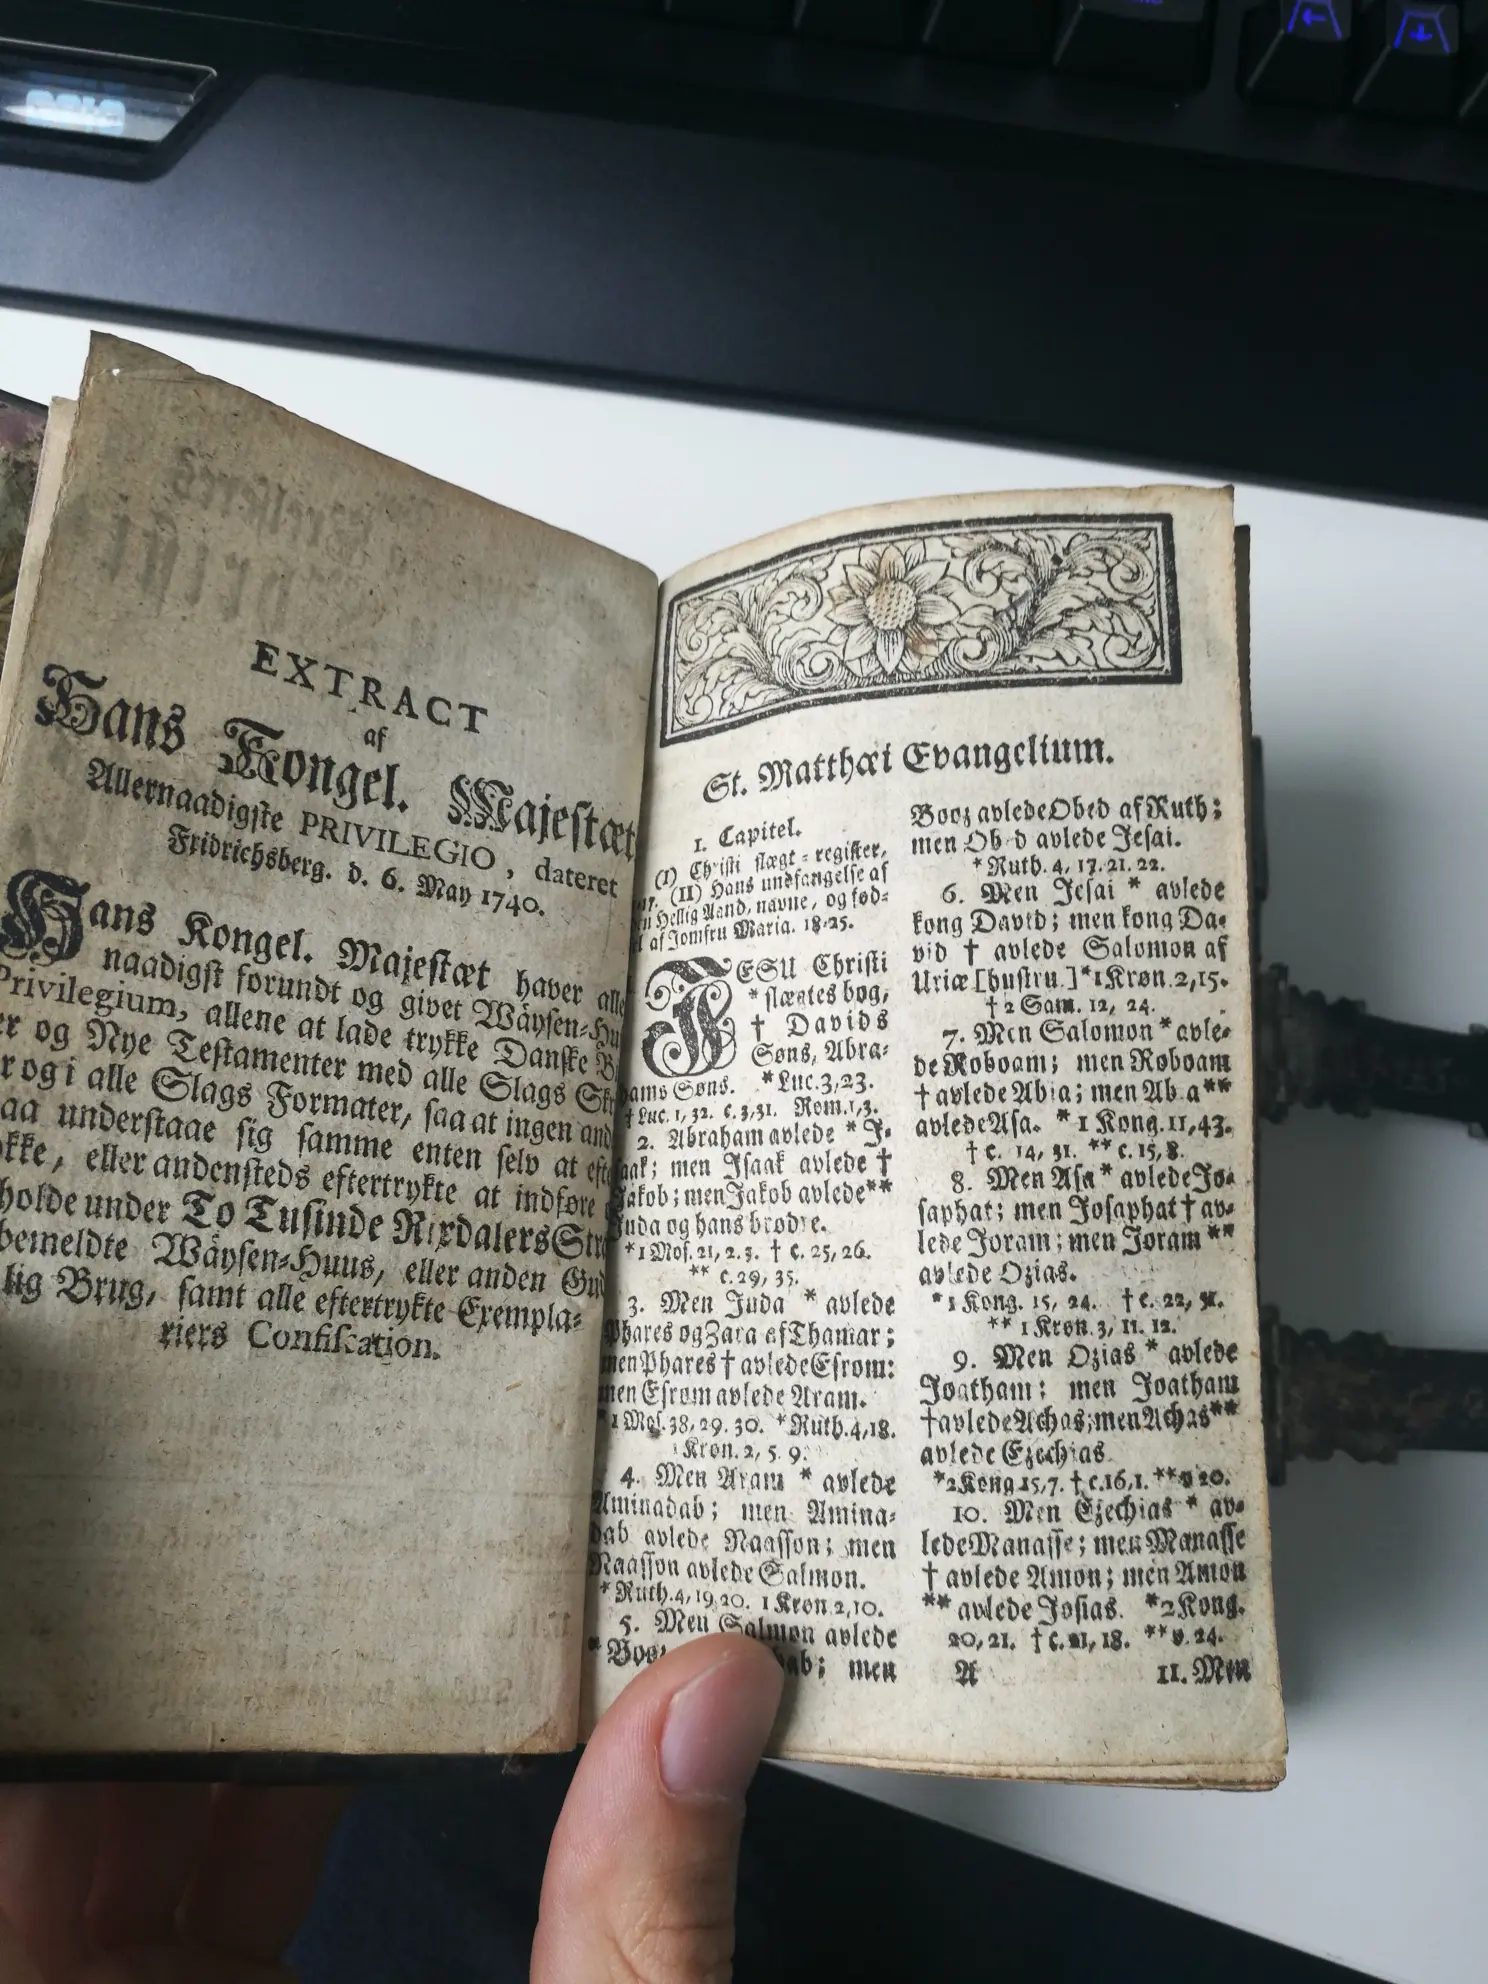 EXTRACT
af
Hans Kongel. Majestæt
Allernaadigste PRIVILEGIO, dateret
Fridrichsberg. d. 6. May 1740.
Hans Kongel. Majestæt haver
naadigst forundt og givet Wäysen-Hu
Privilegium, allene at lade trykke Danske
og Nye Testamenter med alle Slags
r og i alle Slags Formater, saa at ingen and
aa understaae sig samme enten selv at eft
kke, eller andensteds eftertrykte at indføre
holde under To Tusinde Rixdalers Str
bemeldte Wäysen-Huus, eller anden Gud
lig Brug, samt alle eftertrykte Exempla-
riers Confiscation.
St. Matthæi Evangelium.
1. Capitel.
(I) Christi slægt-register,
17. (II) Hans undfangelse af
Hellig Aand, navne, og fød-
af Jomfru Maria. 18-25.
JESU Christi
* slægtes bog,
† Davids
Søns, Abra-
hams Søns. * Luc. 3, 23.
† Luc. 1, 32. c. 3, 31. Rom. 1, 3.
2. Abraham avlede * I-
saak; men Isaak avlede †
Jakob; men Jakob avlede **
Juda og hans brødre.
* 1 Mos. 21, 2. 3. † c. 25, 26.
** c. 29, 35.
3. Men Juda * avlede
Phares og Zara af Thamar;
men Phares † avlede Esrom:
men Esrom avlede Aram.
* 1 Mos. 38, 29. 30. * Ruth. 4, 18.
1 Krøn. 2, 5. 9.
4. Men Aram * avlede
Aminadab; men Amina-
dab avlede Naasson; men
Naasson avlede Salmon.
* Ruth. 4, 19. 20. 1 Krøn. 2, 10.
5. Men Salmon avlede
* Boo men
Booz avlede Obed af Ruth;
men Ob d avlede Jesai.
* Ruth. 4, 17. 21. 22.
6. Men Jesai * avlede
kong David; men kong Da-
vid † avlede Salomon af
Uriæ [hustru.] * 1 Krøn. 2, 15.
† 2 Sam. 12, 24.
7. Men Salomon * avle-
de Roboam; men Roboam
† avlede Abia; men Ab a **
avlede Asa. * 1 Kong. 11, 43.
† c. 14, 31. ** c. 15, 8.
8. Men Asa * avlede Jo-
saphat; men Josaphat † av-
lede Joram; men Joram **
avlede Ozias.
* 1 Kong. 15, 24. † c. 22, 51.
** 1 Krøn. 3, 11. 12.
9. Men Ozias * avlede
Joatham: men Joatham
† avlede Achas; men Achas **
avlede Ezechias.
* 2 Kong 15, 7. † c. 16, 1. ** v 20.
10. Men Ezechias * av-
lede Manasse; men Manasse
† avlede Amon; men Amon
** avlede Josias. * 2 Kong.
20, 21. † c. 21, 18. ** v. 24.
A 11. Men